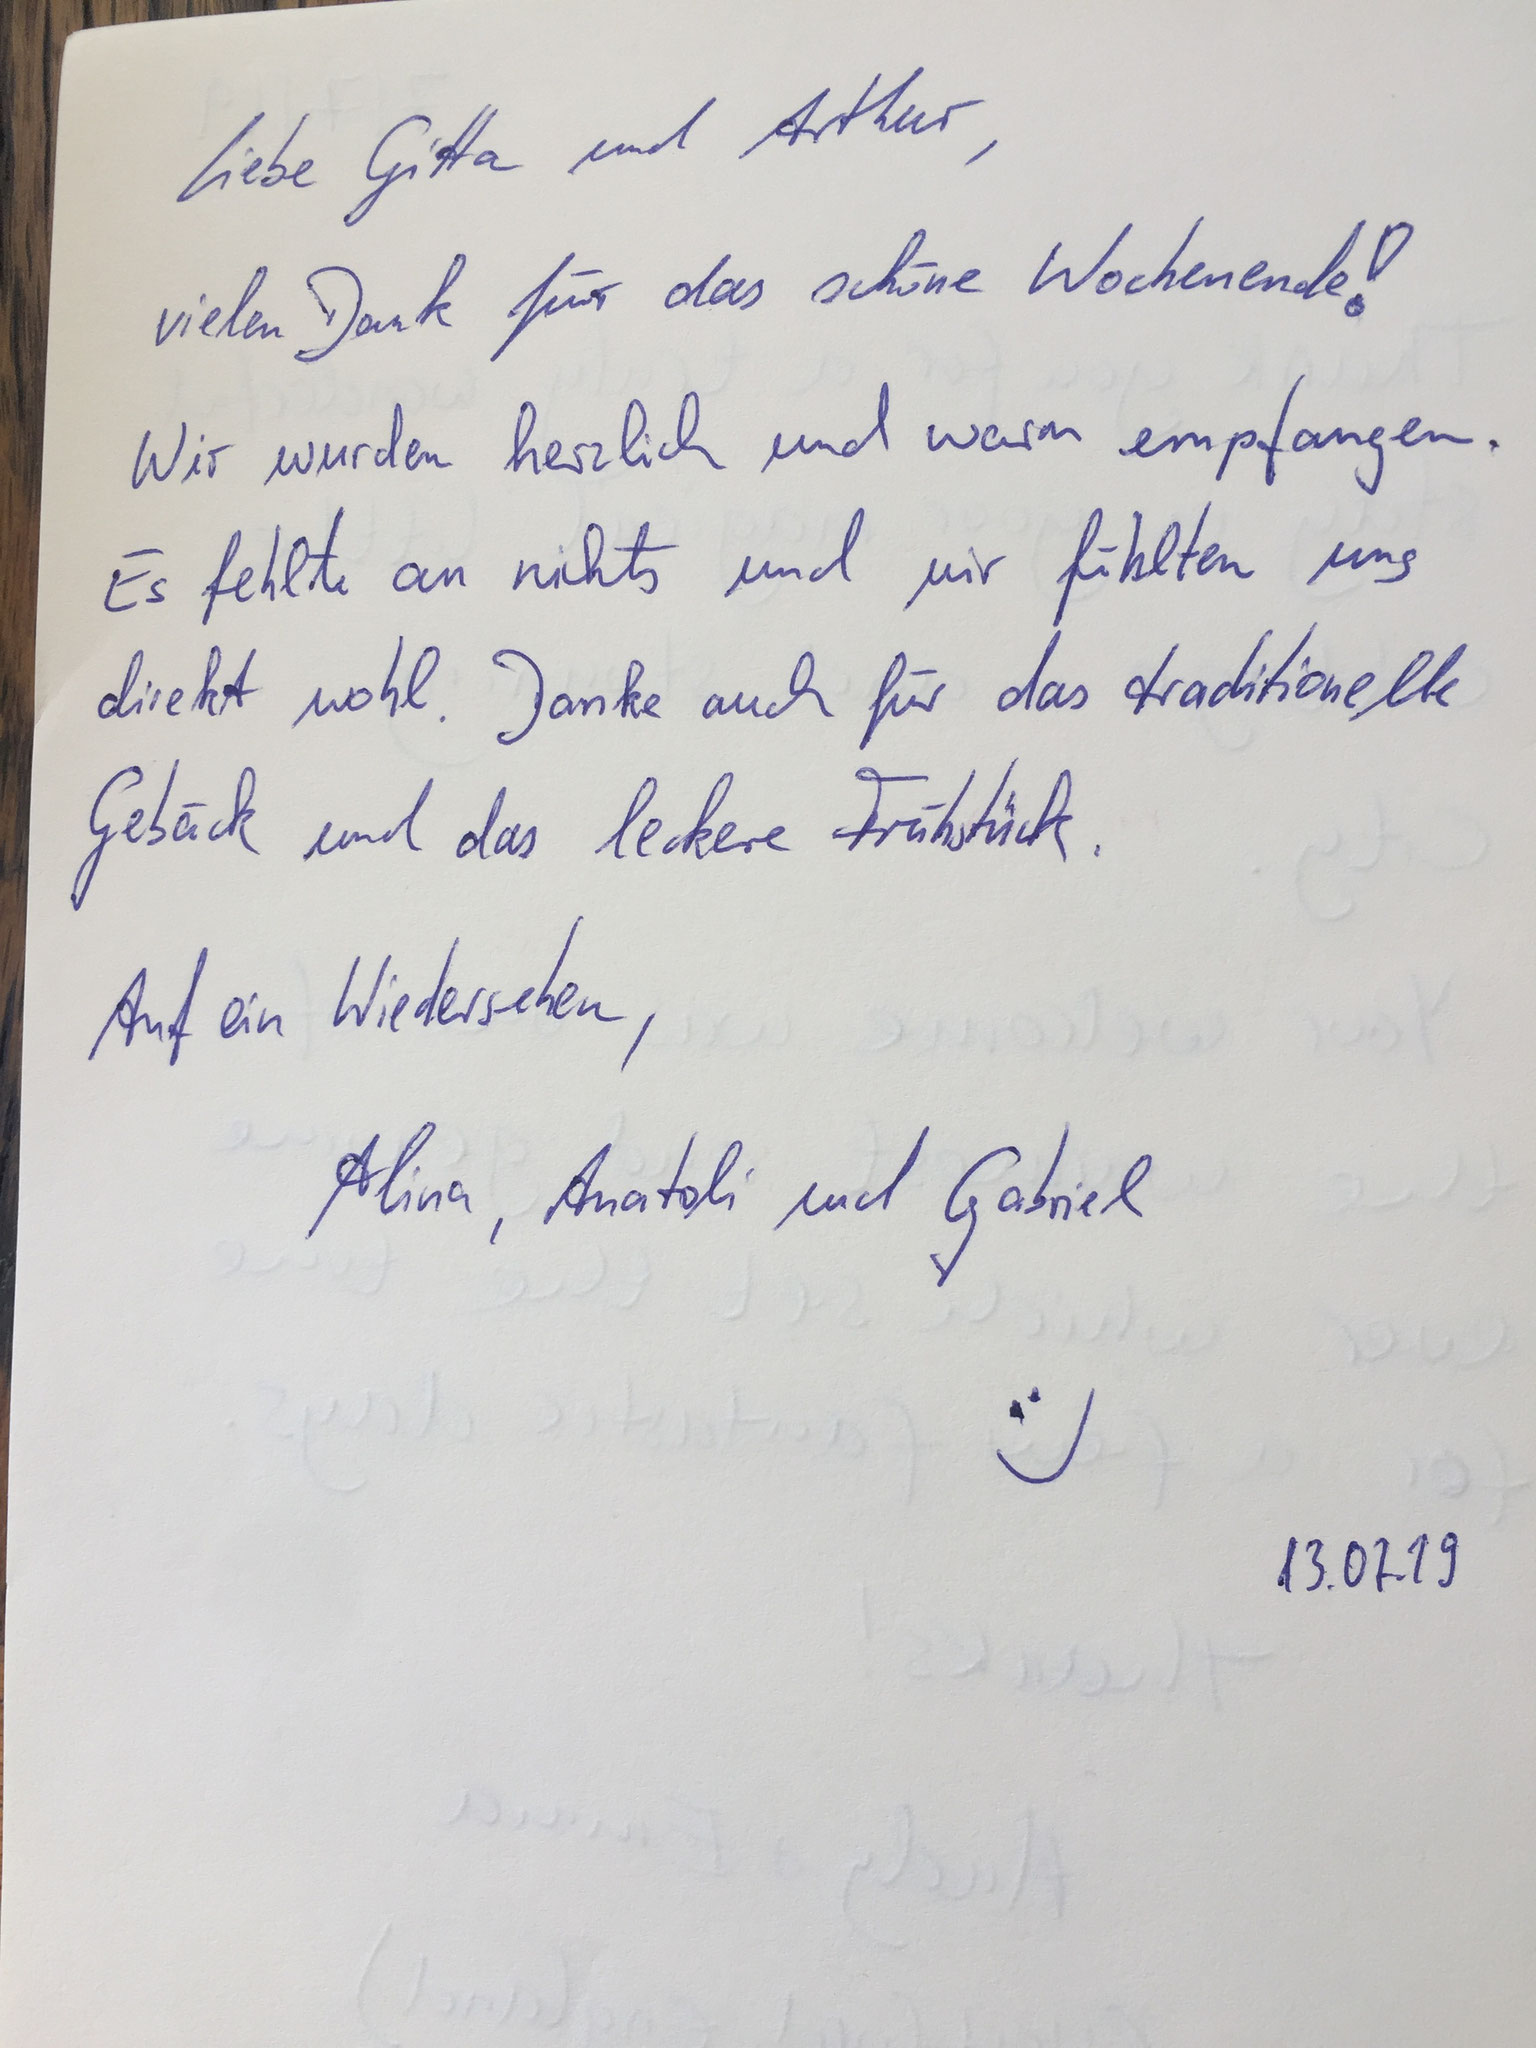 Liebe Gitta und Arthur,
vielen Dank für das schöne Wochenende!
Wir wurden herzlich und warm empfangen.
Es fehlte an nichts und wir fühlten uns
direkt wohl. Danke auch für das traditionelle
Gebäck und das leckere Frühstück.
Auf ein Wiedersehen,
Alina, Anatoli und Gabriel
13.07.19